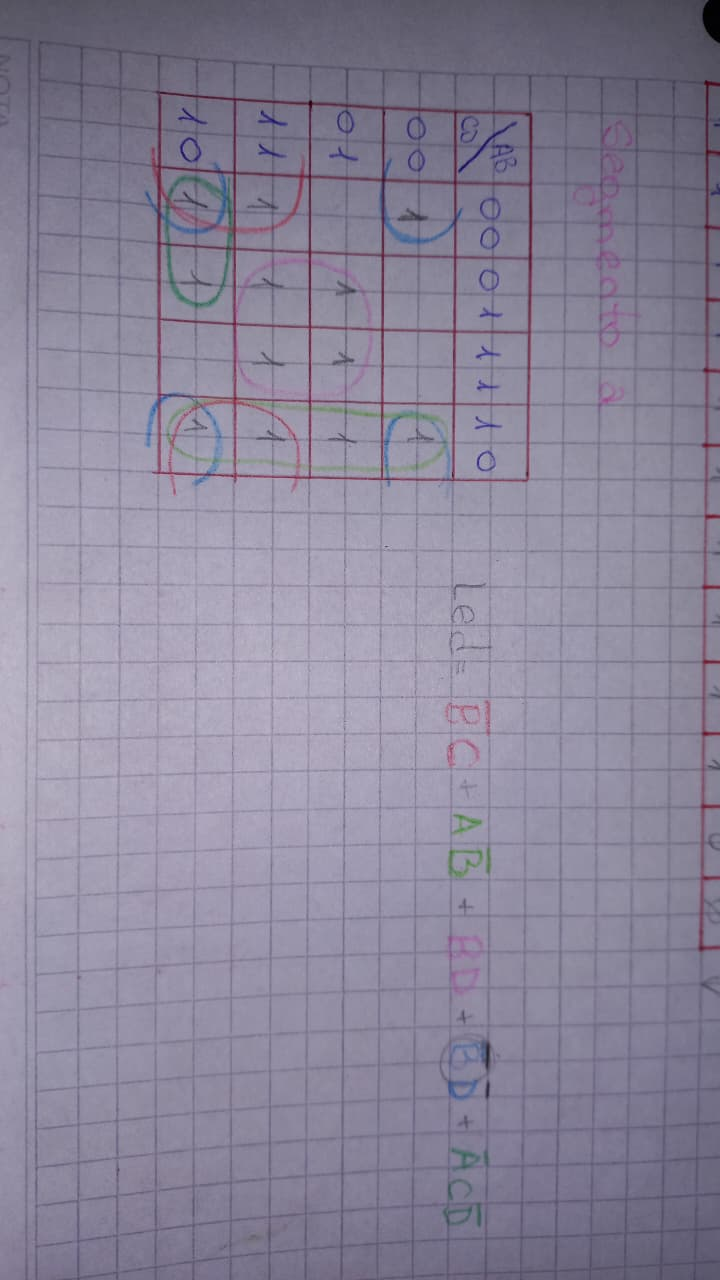 Segmento a
CD\AB 00 01 11 10
00 1 1
01 1 1 1
11 1 1 1 1
10 1 1 1
Led = B̅C + AB̅ + BD + B̅D̅ + A̅CD̅